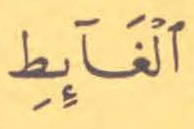 ٱلْغَآئِطِ